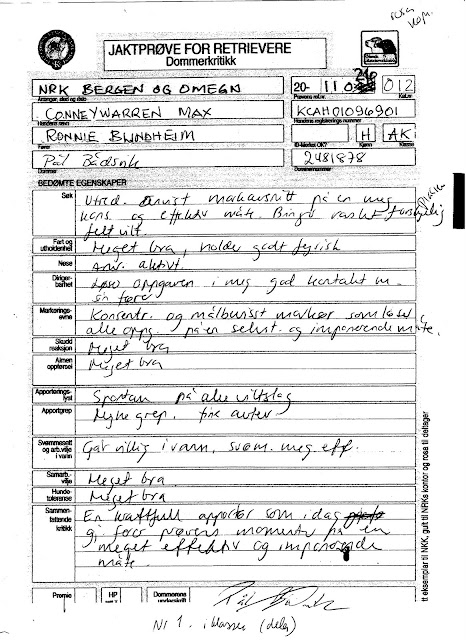 rosa
JAKTPRØVE FOR RETRIEVERE
Dommerkritikk
NRK BERGEN OG OMEGN
20- 110 012
Arrangør, sted og dato
Prøvens ref.nr.
Kat.nr.
CONNEYWARREN MAX
KCAH01096901
Hundens navn
Hundens registrerings nummer
RONNIE BLINDHEIM
H AK
Fører
ID-merket OK?
Kjønn
Klasse
Pål
2481878
Dommer
Dommernummer
BEDØMTE EGENSKAPER
Søk
Utred. anvist markavsnitt på en meg
kons. og effektiv måte. Bringer raskt forskjellig
felt vilt.
Fart og utholdenhet
Meget bra, holder godt fysisk
Nese
Anv. aktivt.
Dirigerbarhet
Løser oppgaven i meg god kontakt m
sin fører
Markeringsevne
Konsentr. og målbevisst markør som løser
alle oppg. på en selvst. og imponerende måte.
Skudd reaksjon
Meget bra
Almen oppførsel
Meget bra
Apporteringslyst
Spontan på alle viltslag
Apportgrep
Myke grep. fine avlev
Svømmesett og arb.vilje i vann
Går villig i vann, svøm. meg eff.
Samarb.vilje
Meget bra.
Hundetoleranse
Meget bra
Sammenfattende kritikk
En kraftfull apportør som i dag
gj. fører prøvens momenter på en
meget effektiv og imponerende
måte.
Premie
HP
Dommerens underskrift
Nr 1. i klassen (delt)
tt eksemplar til NKK, gult til NRKs kontor og rosa til deltager